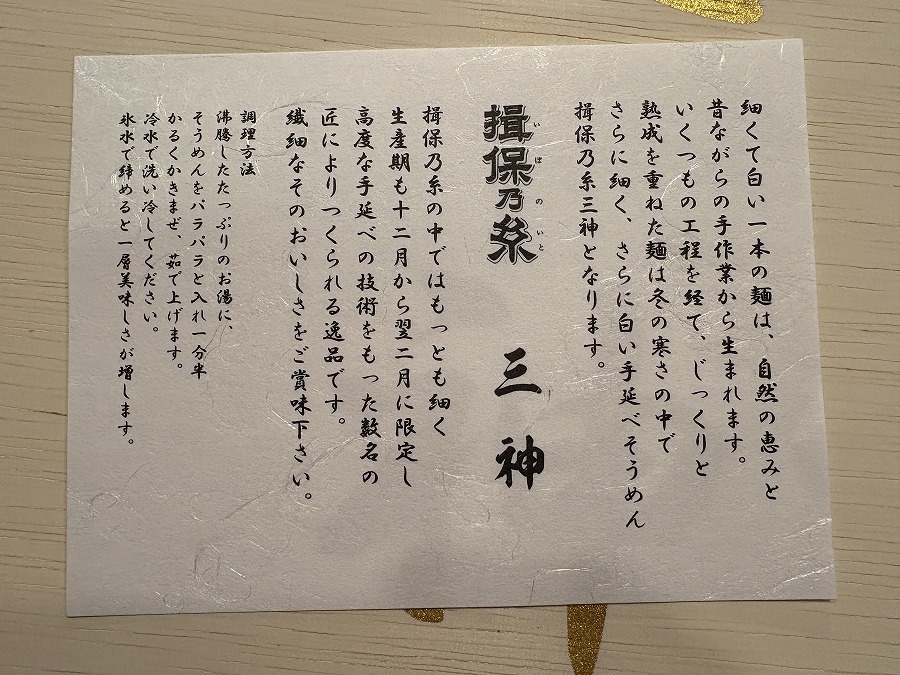 細くて白い一本の麺は、自然の恵みと
昔ながらの手作業から生まれます。
いくつもの工程を経て、じっくりと
熟成を重ねた麺は冬の寒さの中で
さらに細く、さらに白い手延べそうめん
揖保乃糸三神となります。
揖保乃糸 三神
いぼのいと
揖保乃糸の中ではもっとも細く
生産期も十二月から翌二月に限定し
高度な手延べの技術をもった数名の
匠によりつくられる逸品です。
繊細なそのおいしさをご賞味下さい。
調理方法
沸騰したたっぷりのお湯に、
そうめんをパラパラと入れ一分半
かるくかきまぜ、茹で上げます。
冷水で洗い冷してください。
氷水で締めると一層美味しさが増します。